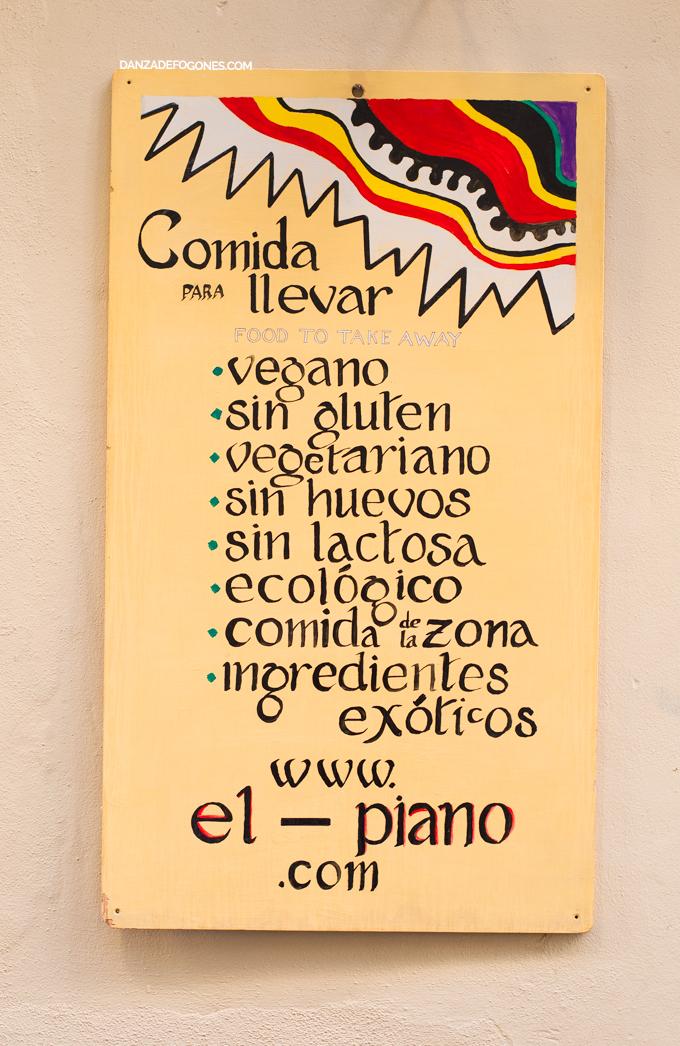 DANZADEFOGONES.COM
Comida
PARA llevar
FOOD TO TAKE AWAY
•vegano
•sin gluten
•vegetariano
•sin huevos
•sin lactosa
•ecológico
•comida de la zona
•ingredientes
exóticos
www.
el – piano
.com